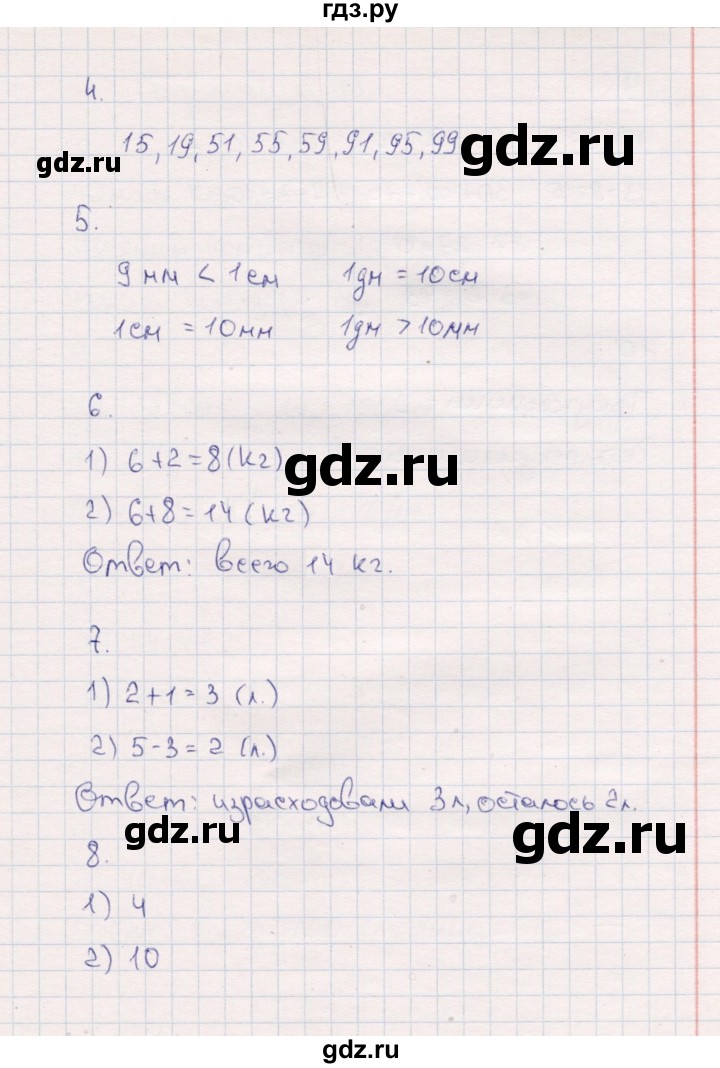 гдз.ру
4.
15, 19, 51, 55, 59, 91, 95, 99
gdz.ru
gdz.ru
5.
9 мм < 1 см 1дм = 10 см
1см = 10 мм 1дм > 10 мм
6.
1) 6+2=8(кг)
gdz.ru
2) 6+8=14 (кг)
Ответ: всего 14 кг.
7.
1) 2+1=3 (л.)
2) 5-3=2 (л.)
Ответ: израсходовали 3 л, осталось 2 л.
gdz.ru
gdz.ru
8.
1) 4
2) 10
gdz.ru